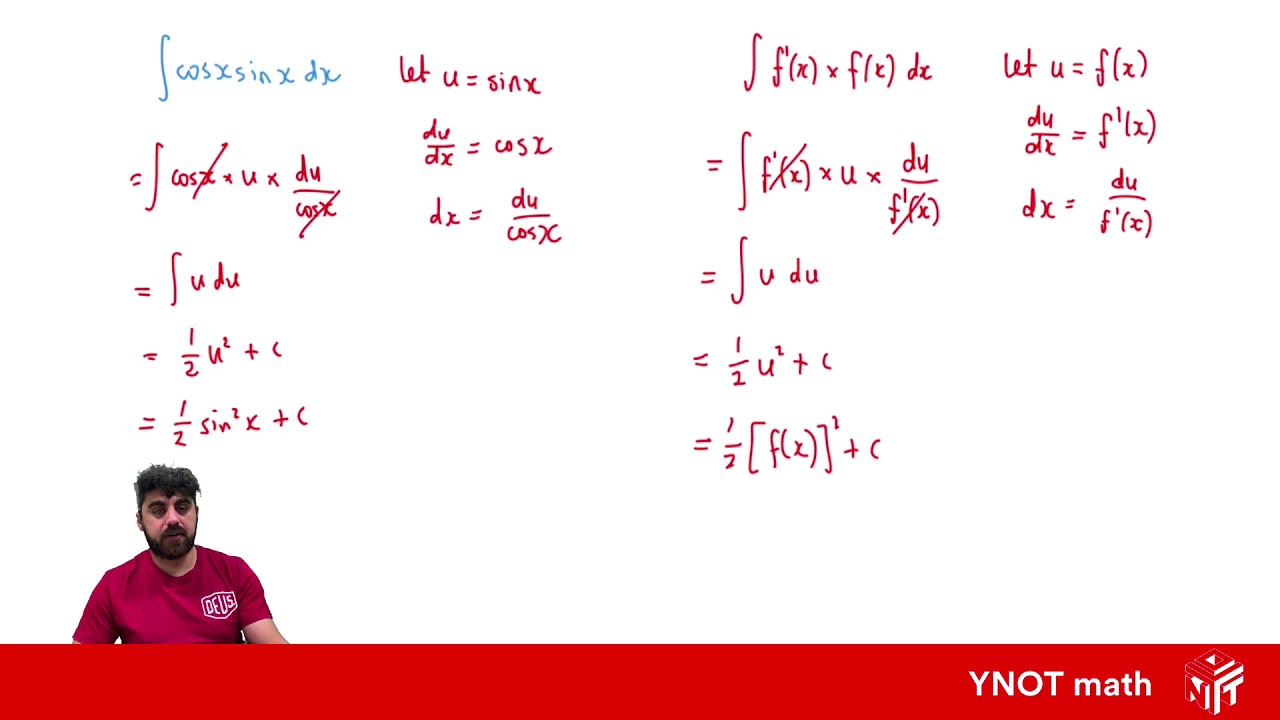 ∫ cosx sinx dx
let u = sinx
= ∫ cosx × u × du/cosx
du/dx = cosx
dx = du/cosx
= ∫ u du
= 1/2 u² + c
= 1/2 sin²x + c
∫ f'(x) × f(x) dx
let u = f(x)
= ∫ f'(x) × u × du/f'(x)
du/dx = f'(x)
dx = du/f'(x)
= ∫ u du
= 1/2 u² + c
= 1/2 [f(x)]² + c
DEUS
YNOT math
YNOT